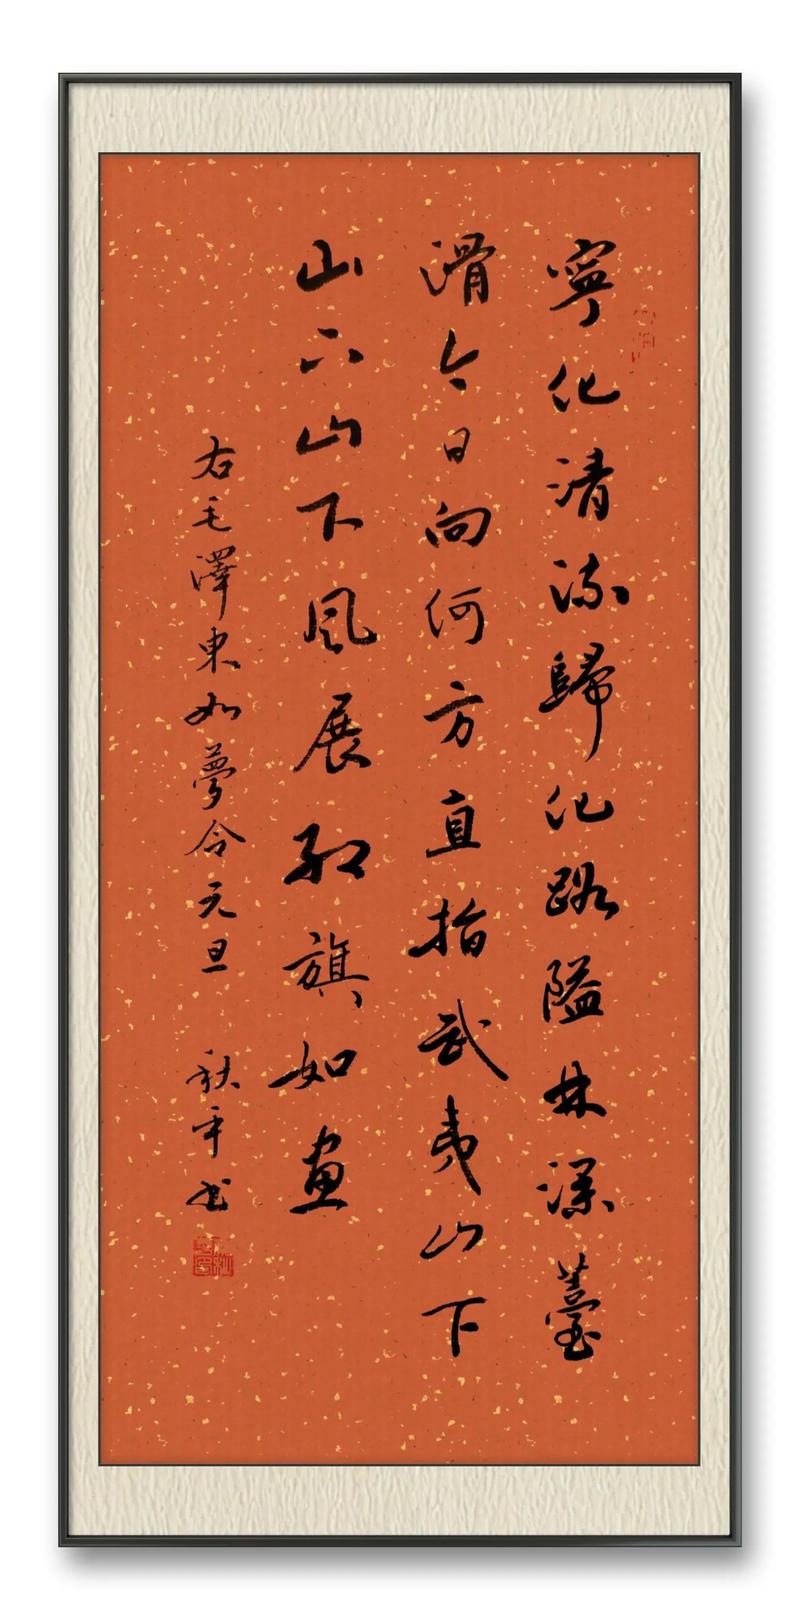 寧化清流歸化路隘林深薹
滑今日向何方直指武夷山下
山下山下風展紅旗如畫
右毛澤東如夢令元旦 秋平书